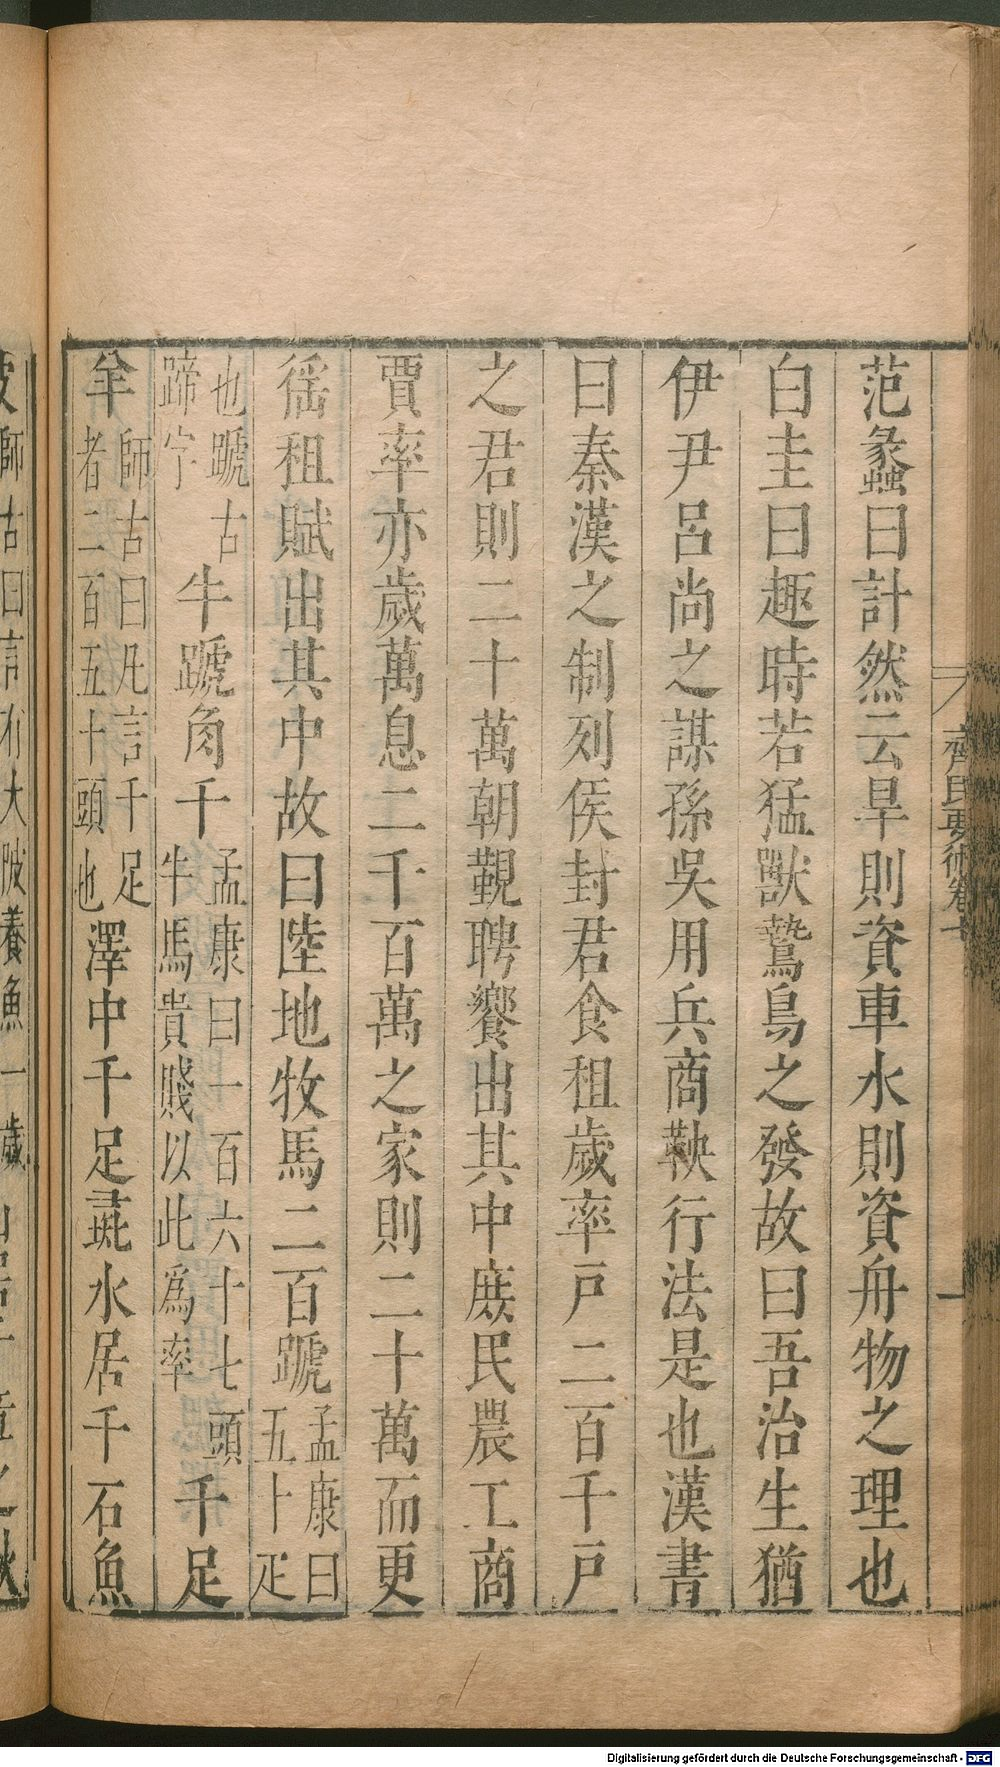 范蠡曰計然云旱則資車水則資舟物之理也
白圭曰趣時若猛獸鷙鳥之發故曰吾治生猶
伊尹呂尚之謀孫吳用兵商鞅行法是也漢書
曰秦漢之制列侯封君食租歲率戶二百千戶
之君則二十萬朝覲聘饗出其中庶民農工商
賈率亦歲萬息二千百萬之家則二十萬而更
徭租賦出其中故曰陸地牧馬二百蹏孟康曰五十疋
也蹏古蹄字牛蹏角千孟康曰一百六十七頭牛馬貴賤以此為率千足
羊師古曰凡言千足者二百五十頭也澤中千足彘水居千石魚
陂師古曰言有大陂養魚一歲
齊民要術卷七
一
Digitalisierung gefördert durch die Deutsche Forschungsgemeinschaft - DFG